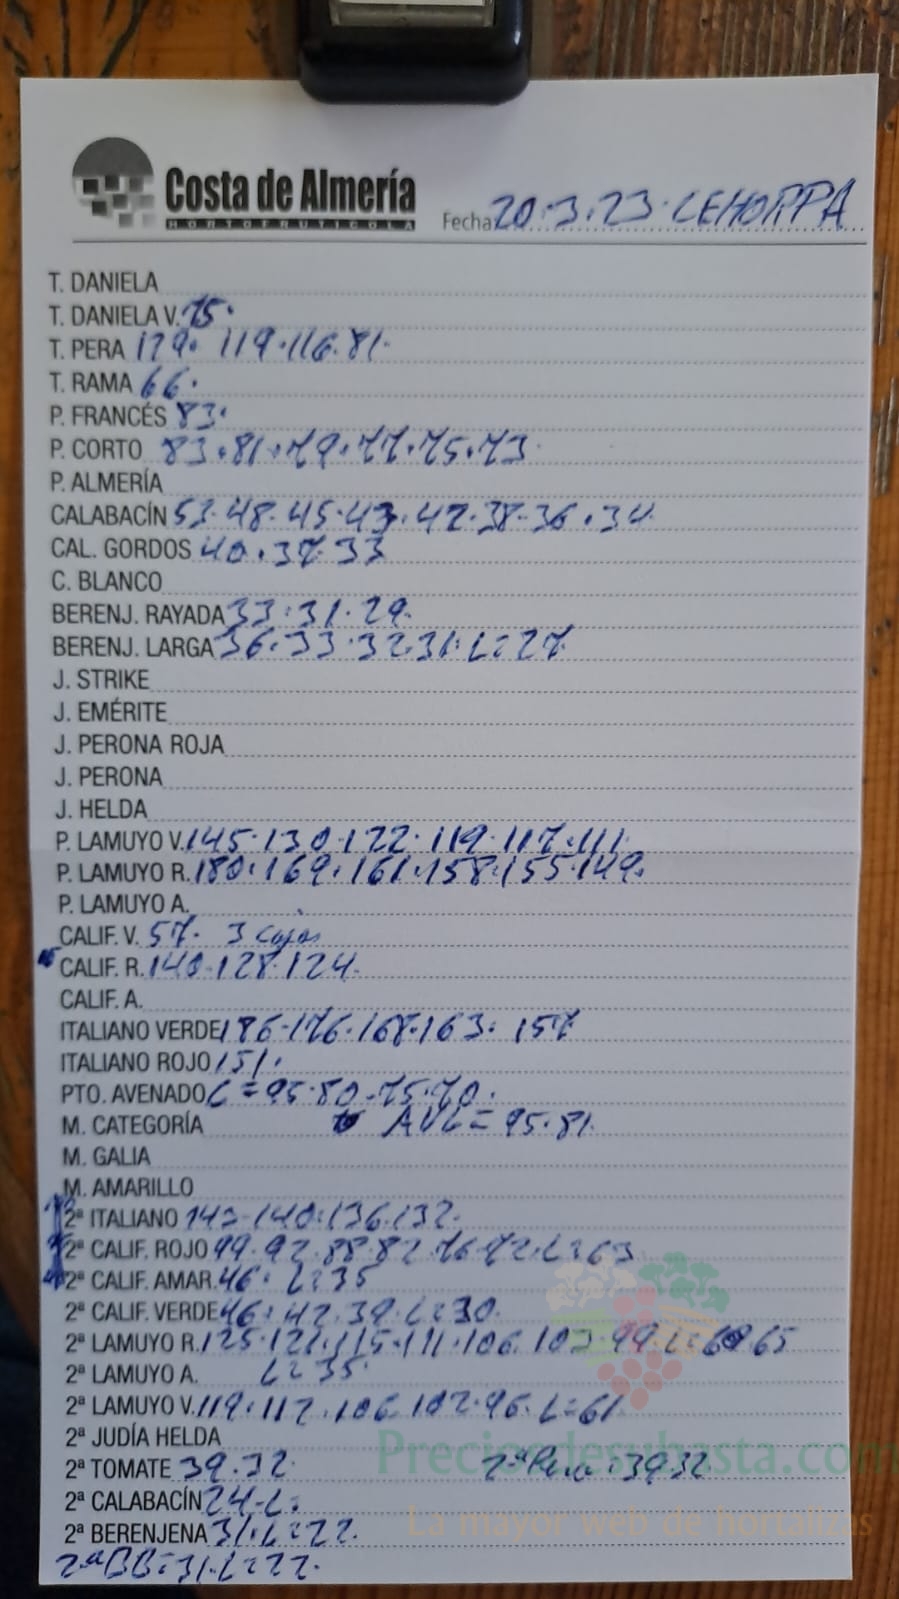 Costa de Almería
HORTOFRUTICOLA
Fecha 20.3.23. LEHORPA
T. DANIELA
T. DANIELA V. 75.
T. PERA 129. 119.116.81.
T. RAMA 66.
P. FRANCÉS 83.
P. CORTO 83.81.79.77.75.73
P. ALMERÍA
CALABACÍN 53.48.45.43.42.38.36.34.
CAL. GORDOS 40.37.33
C. BLANCO
BERENJ. RAYADA 33.31.29.
BERENJ. LARGA 36.33.32.31.L=27.
J. STRIKE
J. EMÉRITE
J. PERONA ROJA
J. PERONA
J. HELDA
P. LAMUYO V. 145.130.122.119.117.111.
P. LAMUYO R. 180.169.161.158.155.149.
P. LAMUYO A.
CALIF. V. 57. 3 cajas
CALIF. R. 140.128.124.
CALIF. A.
ITALIANO VERDE 186.176.168.163. 157
ITALIANO ROJO 151.
PTO. AVENADO L=95.80.75.70.
M. CATEGORÍA AVL=95.81.
M. GALIA
M. AMARILLO
2ª ITALIANO 143.140.136.132.
2ª CALIF. ROJO 99.92.88.82.76.72.L=63
2ª CALIF. AMAR. 46. L=35
2ª CALIF. VERDE 46.42.39.L=30.
2ª LAMUYO R. 125.121.115.111.106.103.99.L= 65
2ª LAMUYO A. L=35.
2ª LAMUYO V. 119.112.106.102.96.L=61.
2ª JUDÍA HELDA
2ª TOMATE 39.32. 2ª Pera=39 32
Preciosdesubasta.com
2ª CALABACÍN 24.L=
La mayor web de hortalizas
2ª BERENJENA 31.L=22.
2ªBB=31.L=22.